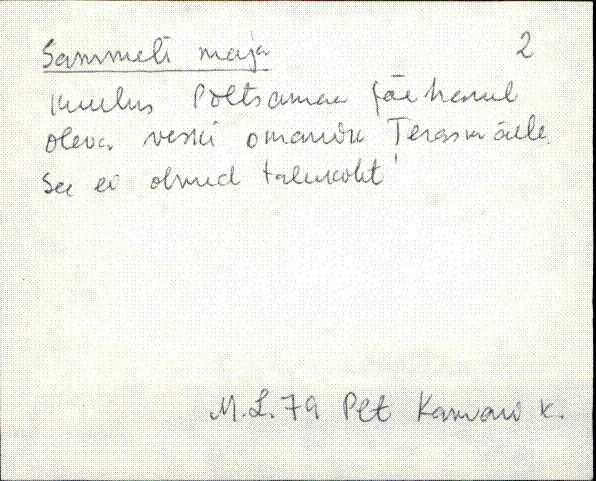 Sammeli maja 2
Kuulus Põltsamaa jõe kesul
oleva veski omaniku Terasmäele.
See ei olnud talukoht!
M.L. 79 Plt Kamari k.